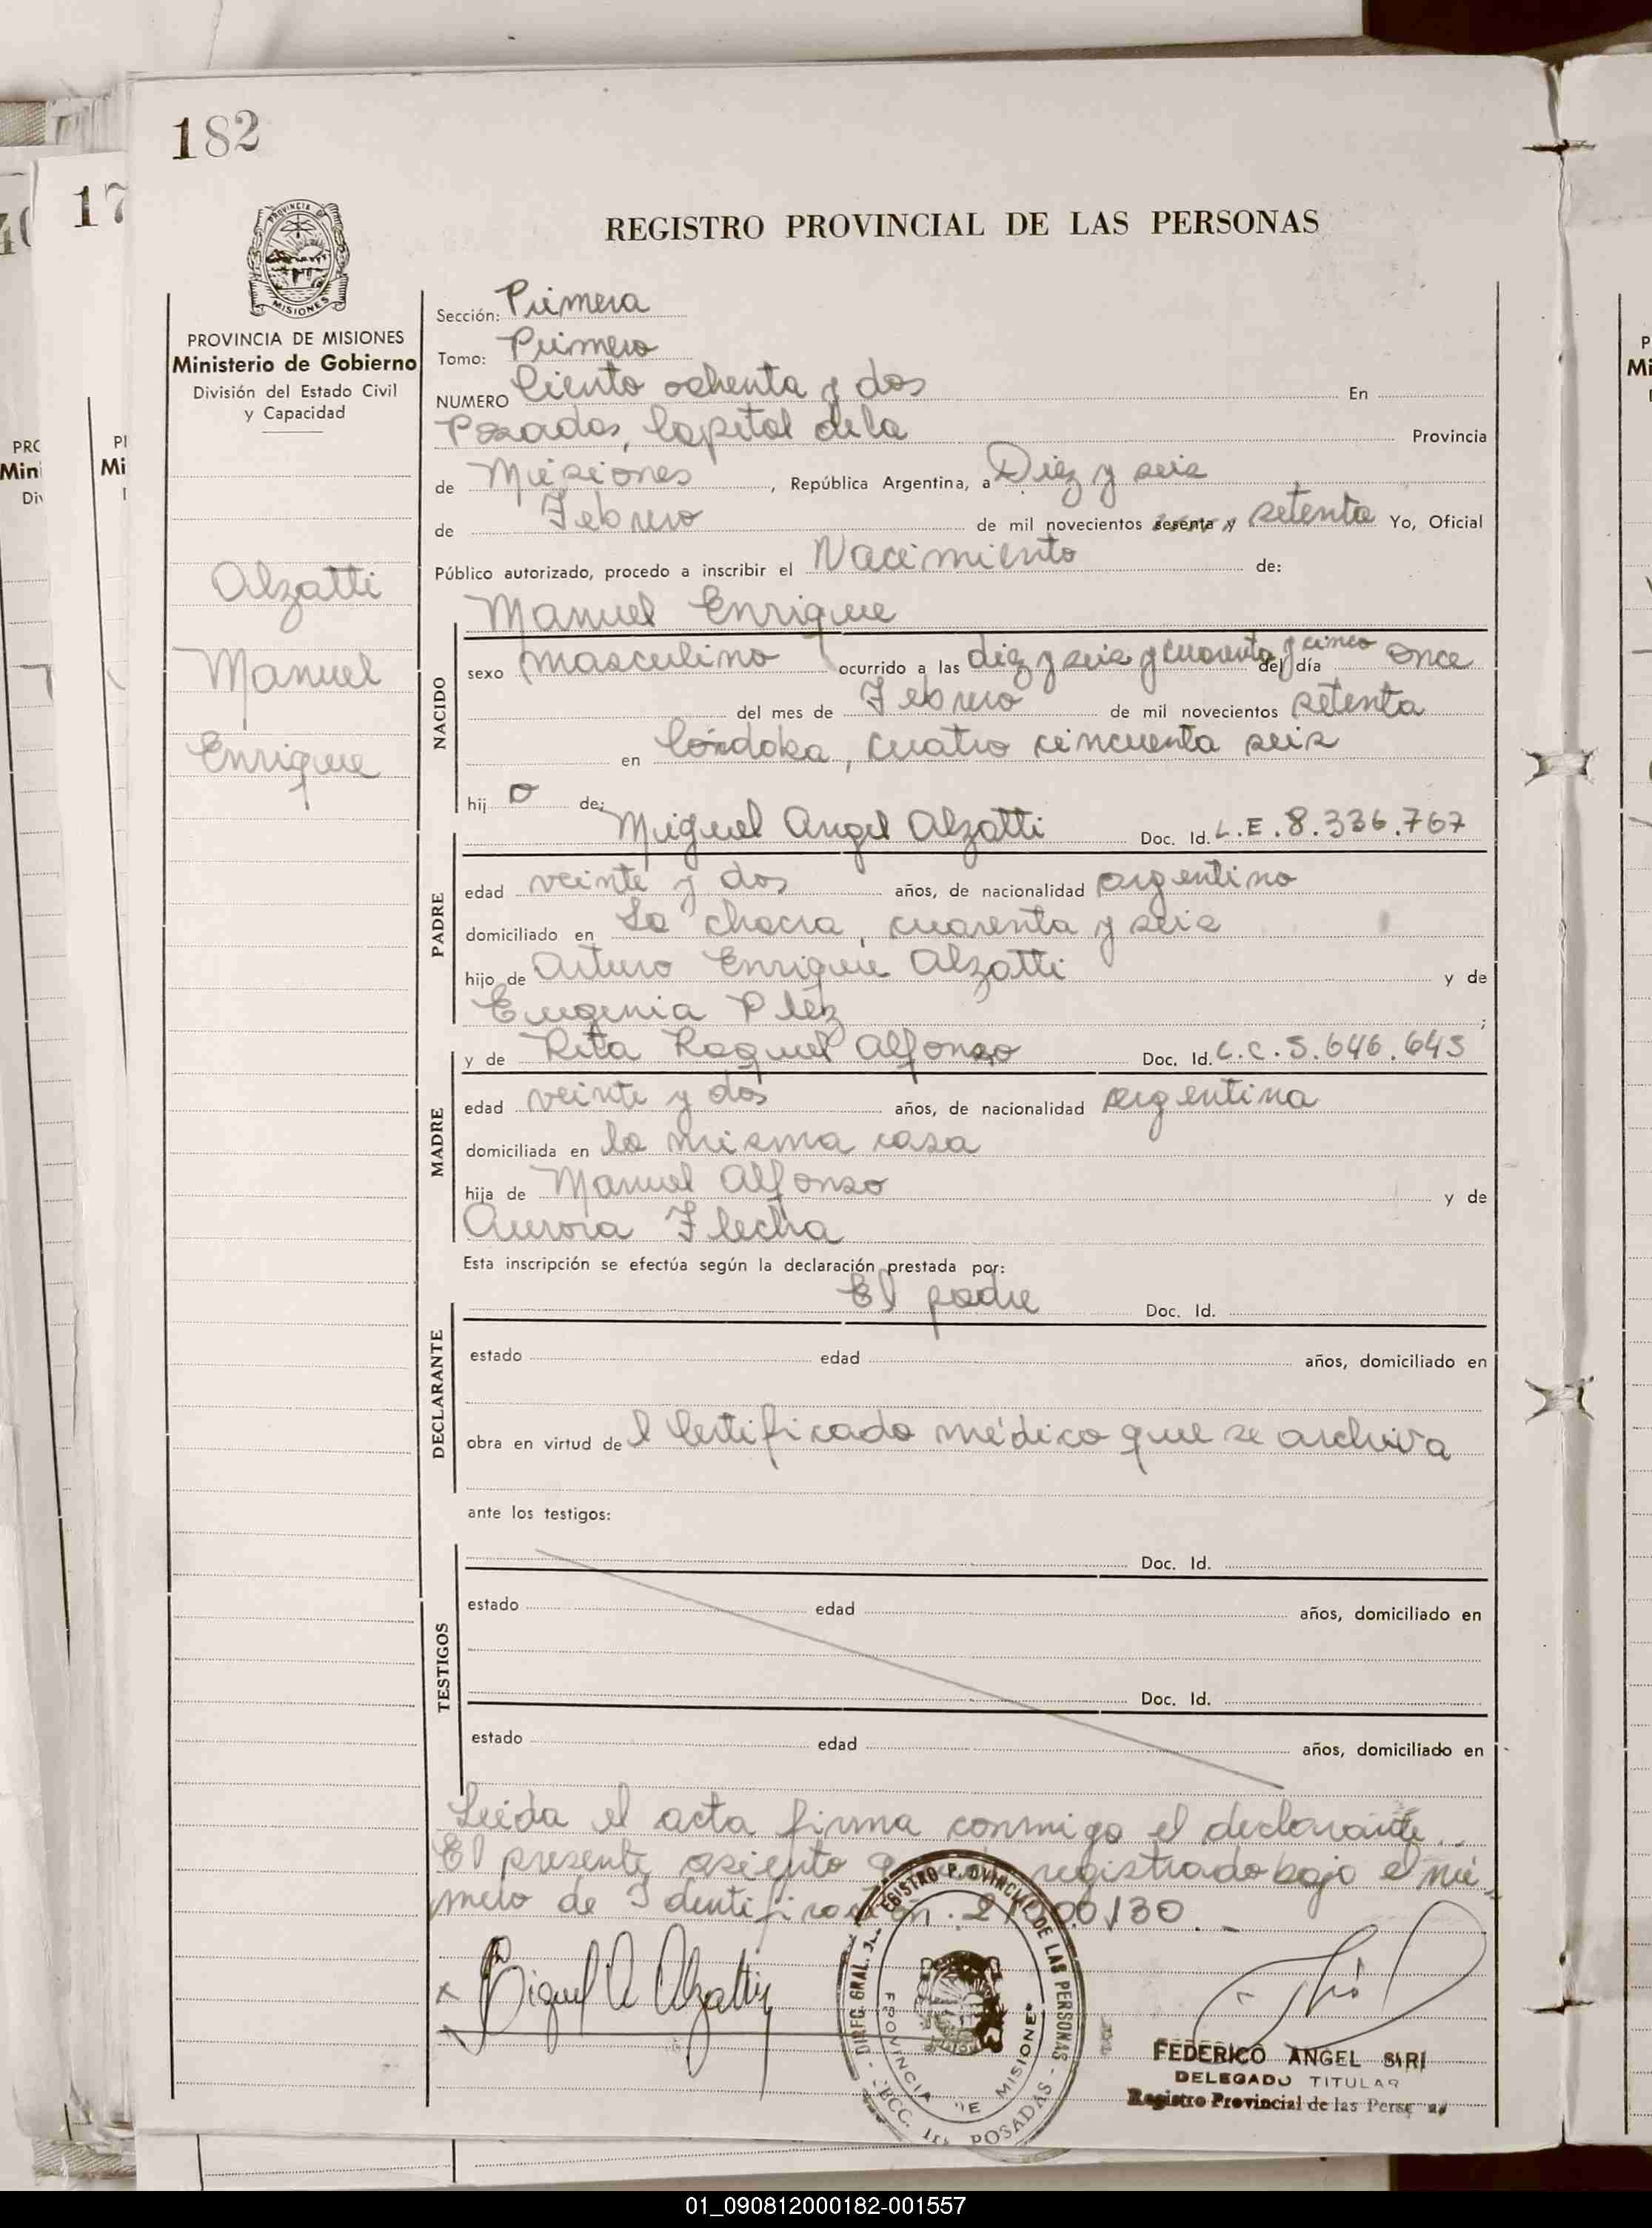 182
REGISTRO PROVINCIAL DE LAS PERSONAS
PROVINCIA DE MISIONES
Ministerio de Gobierno
División del Estado Civil
y Capacidad
Alzatti
Manuel
Enrique
Sección: Primera
Tomo: Primero
NUMERO Ciento ochenta y dos En
Posadas, Capital de la Provincia
de Misiones, República Argentina, a Diez y seis
de Febrero de mil novecientos sesenta y setenta Yo, Oficial
Público autorizado, procedo a inscribir el Nacimiento de:
Manuel Enrique
NACIDO
sexo masculino ocurrido a las diez y seis y cuarenta y cinco del día once
del mes de Febrero de mil novecientos setenta
en Córdoba, cuatro cincuenta seis
hij o de:
Miguel Angel Alzatti Doc. Id. L.E. 8.336.767
PADRE
edad veinte y dos años, de nacionalidad argentino
domiciliado en La chacra, cuarenta y seis
hijo de Arturo Enrique Alzatti y de
Eugenia ;
y de Rita Raquel Alfonso Doc. Id. L.C. 5.646.645
MADRE
edad veinte y dos años, de nacionalidad argentina
domiciliada en la misma casa
hija de Manuel Alfonso y de
Aurora Flecha
Esta inscripción se efectúa según la declaración prestada por:
El padre Doc. Id.
DECLARANTE
estado edad años, domiciliado en
obra en virtud de l Certificado médico que se archiva
ante los testigos:
Doc. Id.
TESTIGOS
estado edad años, domiciliado en
Doc. Id.
estado edad años, domiciliado en
Leída el acta firma conmigo el declarante.
El presente asiento registrado bajo el nú-
mero de Identificación
Miguel A Alzatti
REGISTRO PROVINCIAL DE LAS PERSONAS
PROVINCIA DE MISIONES
POSADAS
FEDERICO ANGEL SIRI
DELEGADO TITULAR
Registro Provincial de las Personas
01_090812000182-001557